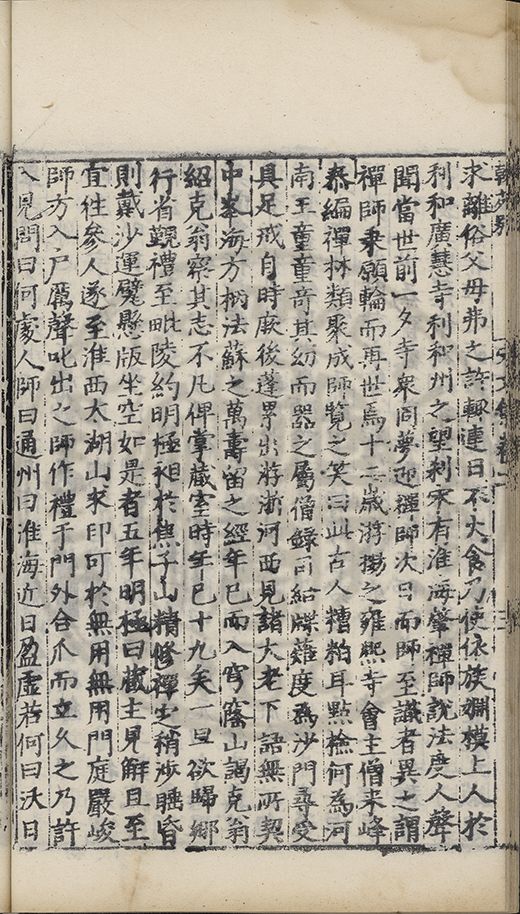 求離俗父母弗之許輒連日不火食乃使依族姻模上人於
利和廣慧寺利和州之望刹宋有淮海肇禪師說法度人聲
聞當世前一夕寺衆同夢迎禪師次日而師至識者異之謂
禪師乘願輪而再世焉十二歲游揚之雍熙寺會主僧来峰
泰編禪林類聚成師覽之笑曰此古人糟粕耳點檢何為河
南王童童竒其幼而器之屬僧錄司給牒薙度為沙門尋受
具足戒自時厥後蓬累出游浙河西見諸大老下語無所契
中峯海方柄法蘇之萬壽留之經年已而入穹窿山謁克翁
紹克翁察其志不凡俾掌藏室時年已十九矣一旦欲歸郷
行省覲禮至毗陵約明極昶於焦子山精修禪定稍涉睡昏
則戴沙運甓懸版坐空如是者五年明極曰歇主見解且至
宜往參人遂至淮西太湖山求印可於無用無用門庭嚴峻
師方入户厲聲叱出之師作禮于門外合爪而立久之乃許
入見問曰何處人師曰通州曰淮海近日盈虚若何曰沃日